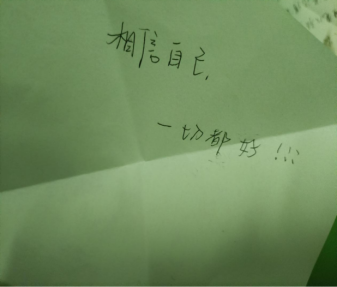 相信自己,
一切都好!!!